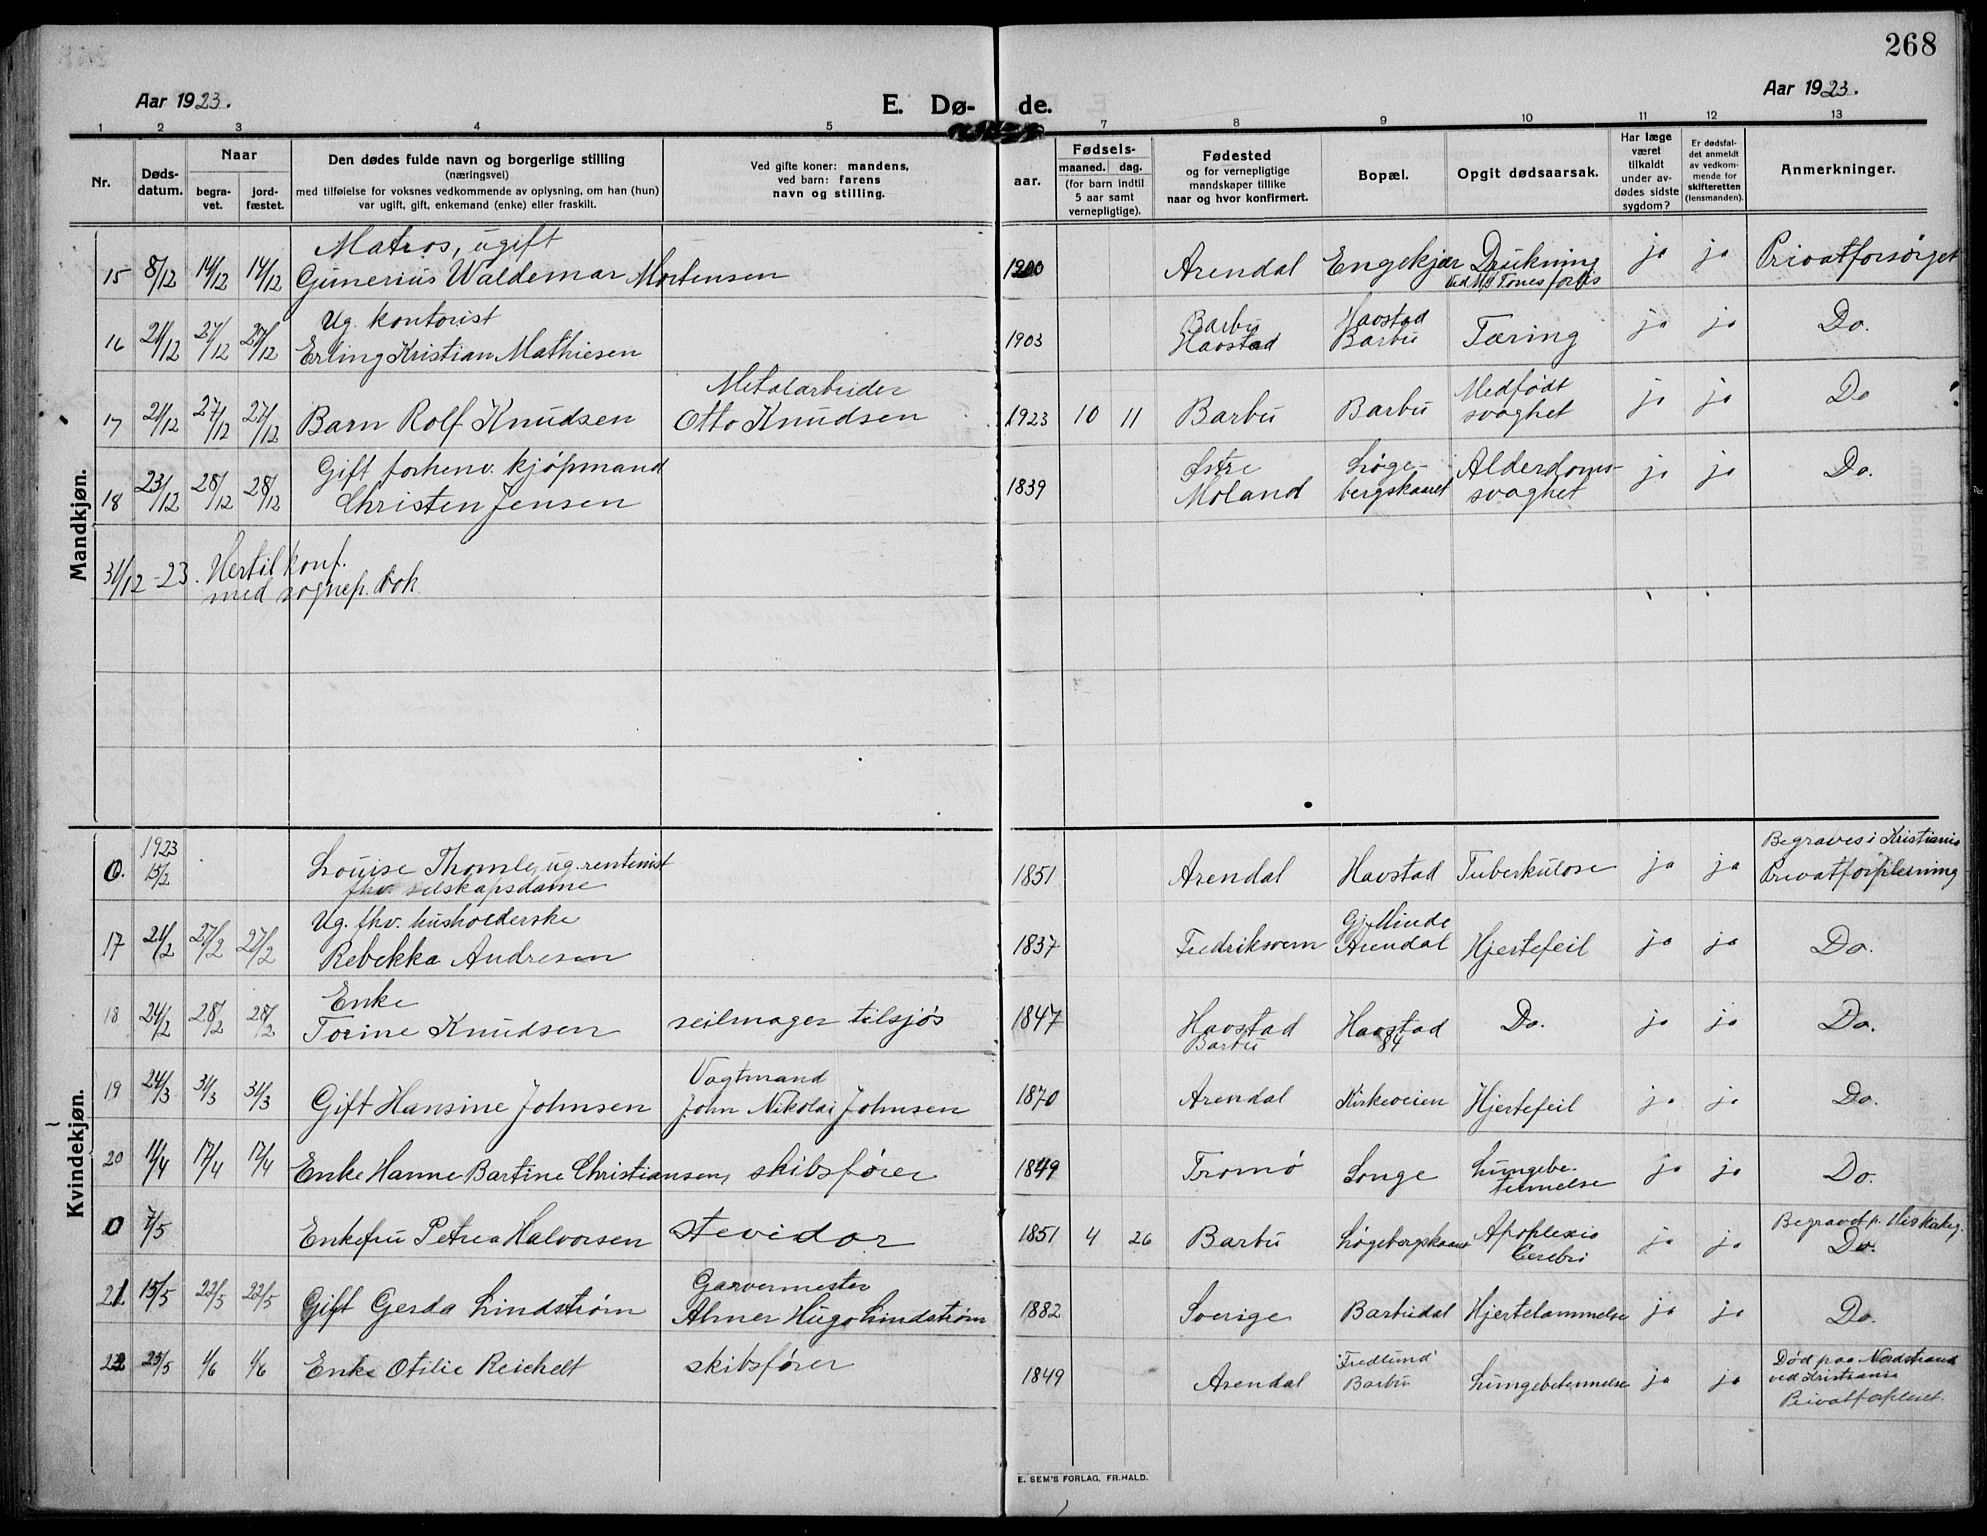 268
Aar 1923.
E. Dø- de.
Aar 1923.
1 2 3 4 5 7 8 9 10 11 12 13
Nr.
Døds-
datum.
Naar
begra-
vet.
jord-
fæstet.
Den dødes fulde navn og borgerlige stilling
(næringsvei)
med tilføielse for voksnes vedkommende av oplysning, om han (hun)
var ugift, gift, enkemand (enke) eller fraskilt.
Ved gifte koner: mandens,
ved barn: farens
navn og stilling.
aar.
Fødsels-
maaned. dag.
(for barn indtil
5 aar samt
vernepligtige).
Fødested
og for vernepligtige
mandskaper tillike
naar og hvor konfirmert.
Bopæl.
Opgit dødsaarsak.
Har læge
været
tilkaldt
under av-
dødes sidste
sygdom?
Er dødsfal-
det anmeldt
av vedkom-
mende for
skifteretten
(lensmanden).
Anmerkninger.
Mandkjøn.
Matros, ugift
15 8/12 14/12 14/12 Gunerius Waldemar Mortensen 1900 Arendal Engekjær Drukning ja ja Privatforsørget
Ved M/S Tones forlis
Ug. kontorist Barbu Havstad
16 21/12 27/12 27/12 Erling Kristian Mathiesen 1903 Havstad Barbu Tæring ja ja Do.
Metalarbeider Medfødt
17 21/12 27/12 27/12 Barn Rolf Knudsen Otto Knudsen 1923 10 11 Barbu Barbu svaghet ja ja Do
Gift forhenv. kjøpmand Østre Løge- Alderdoms-
18 23/12 28/12 28/12 Christen Jensen 1839 Moland bergskaaret svaghet ja ja Do.
31/12 - 23. Hertil konf.
med sognep. bok.
Kvindekjøn.
1923 Begraves i Kristiania
0. 15/2 Louise Thomle, ug. rentenist 1851 Arendal Havstad Tuberkulose ja ja Privatforpleining
fhv. selskapsdame
Ug. fhv. husholderske Gj. Minde
17 21/2 27/2 27/2 Rebekka Andresen 1837 Fredriksvern Arendal Hjertefeil ja ja Do.
Enke
18 24/2 28/2 28/2 Torine Knudsen seilmager tilsjøs 1847 Havstad Havstad Do. ja ja Do.
Barbu 84
Vagtmand
19 24/3 31/3 31/3 Gift Hansine Johnsen John Nikolai Johnsen 1870 Arendal Kirkeveien Hjertefeil ja ja Do.
20 11/4 17/4 17/4 Enke Hanne Bartine Christiansen, skibsfører 1849 Tromø Songe Lungebe- ja ja Do.
tennelse
Begravet p. Hiskirkeg.
0 7/5 Enkefru Petrea Halvorsen Stevidor 1851 4 26 Barbu Løgebergskaaret Apoplexia ja ja Do.
Cerebri
Garvermester
21 15/5 22/5 22/5 Gift Gerda Lindstrøm Almer Hugo Lindstrøm 1882 Sverige Barbudal Hjertelammelse ja ja Do.
"Fredlund" Død paa Nordstrand
22 25/5 1/6 1/6 Enke Otilie Reichelt skibsfører 1849 Arendal Barbu Lungebetennelse ja ja ved Kristiania
Privatforpleiet.
E. SEM'S FORLAG, FR.HALD.